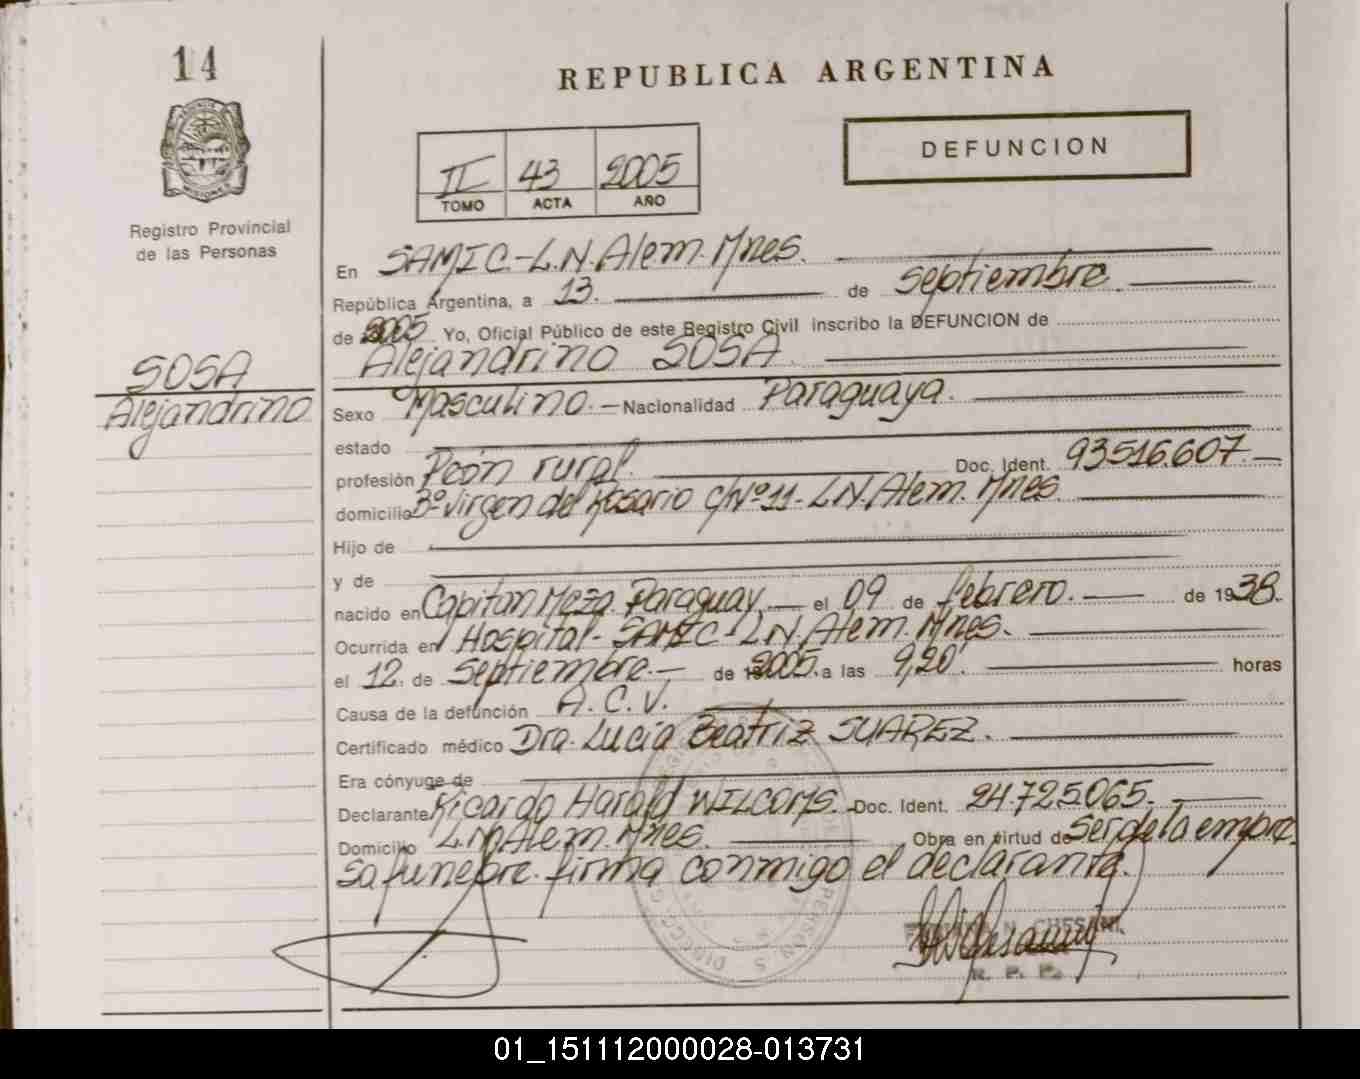 14
REPUBLICA ARGENTINA
II 43 2005
TOMO ACTA AÑO
DEFUNCION
Registro Provincial
de las Personas
En SAMIC-L.N.Alem.Mnes.
República Argentina, a 13. de septiembre.
de 2005 Yo, Oficial Público de este Registro Civil inscribo la DEFUNCION de
Alejandrino SOSA.
SOSA
Alejandrino
Sexo Masculino.- Nacionalidad Paraguaya.
estado
profesión Peón rural. Doc. Ident. 93516.607.
domicilio Bº Virgen del Rosario c/Nº 11-L.N.Alem.Mnes.
Hijo de
y de
nacido en Capitan Meza. Paraguay, el 09 de febrero. de 1938.
Ocurrida en Hospital-SAMIC-L.N.Alem.Mnes.
el 12. de septiembre.- de 2005. a las 9,20. horas
Causa de la defunción A.C.V.
Certificado médico Dra. Lucia Beatriz SUAREZ.
Era cónyuge de
Declarante Ricardo Harald WILCOMS. Doc. Ident. 24.725.065.
Domicilio L.N.Alem.Mnes. Obra en virtud de Ser de la empre
sa funebre. firma conmigo el declarante.
R. P. P.
01_151112000028-013731